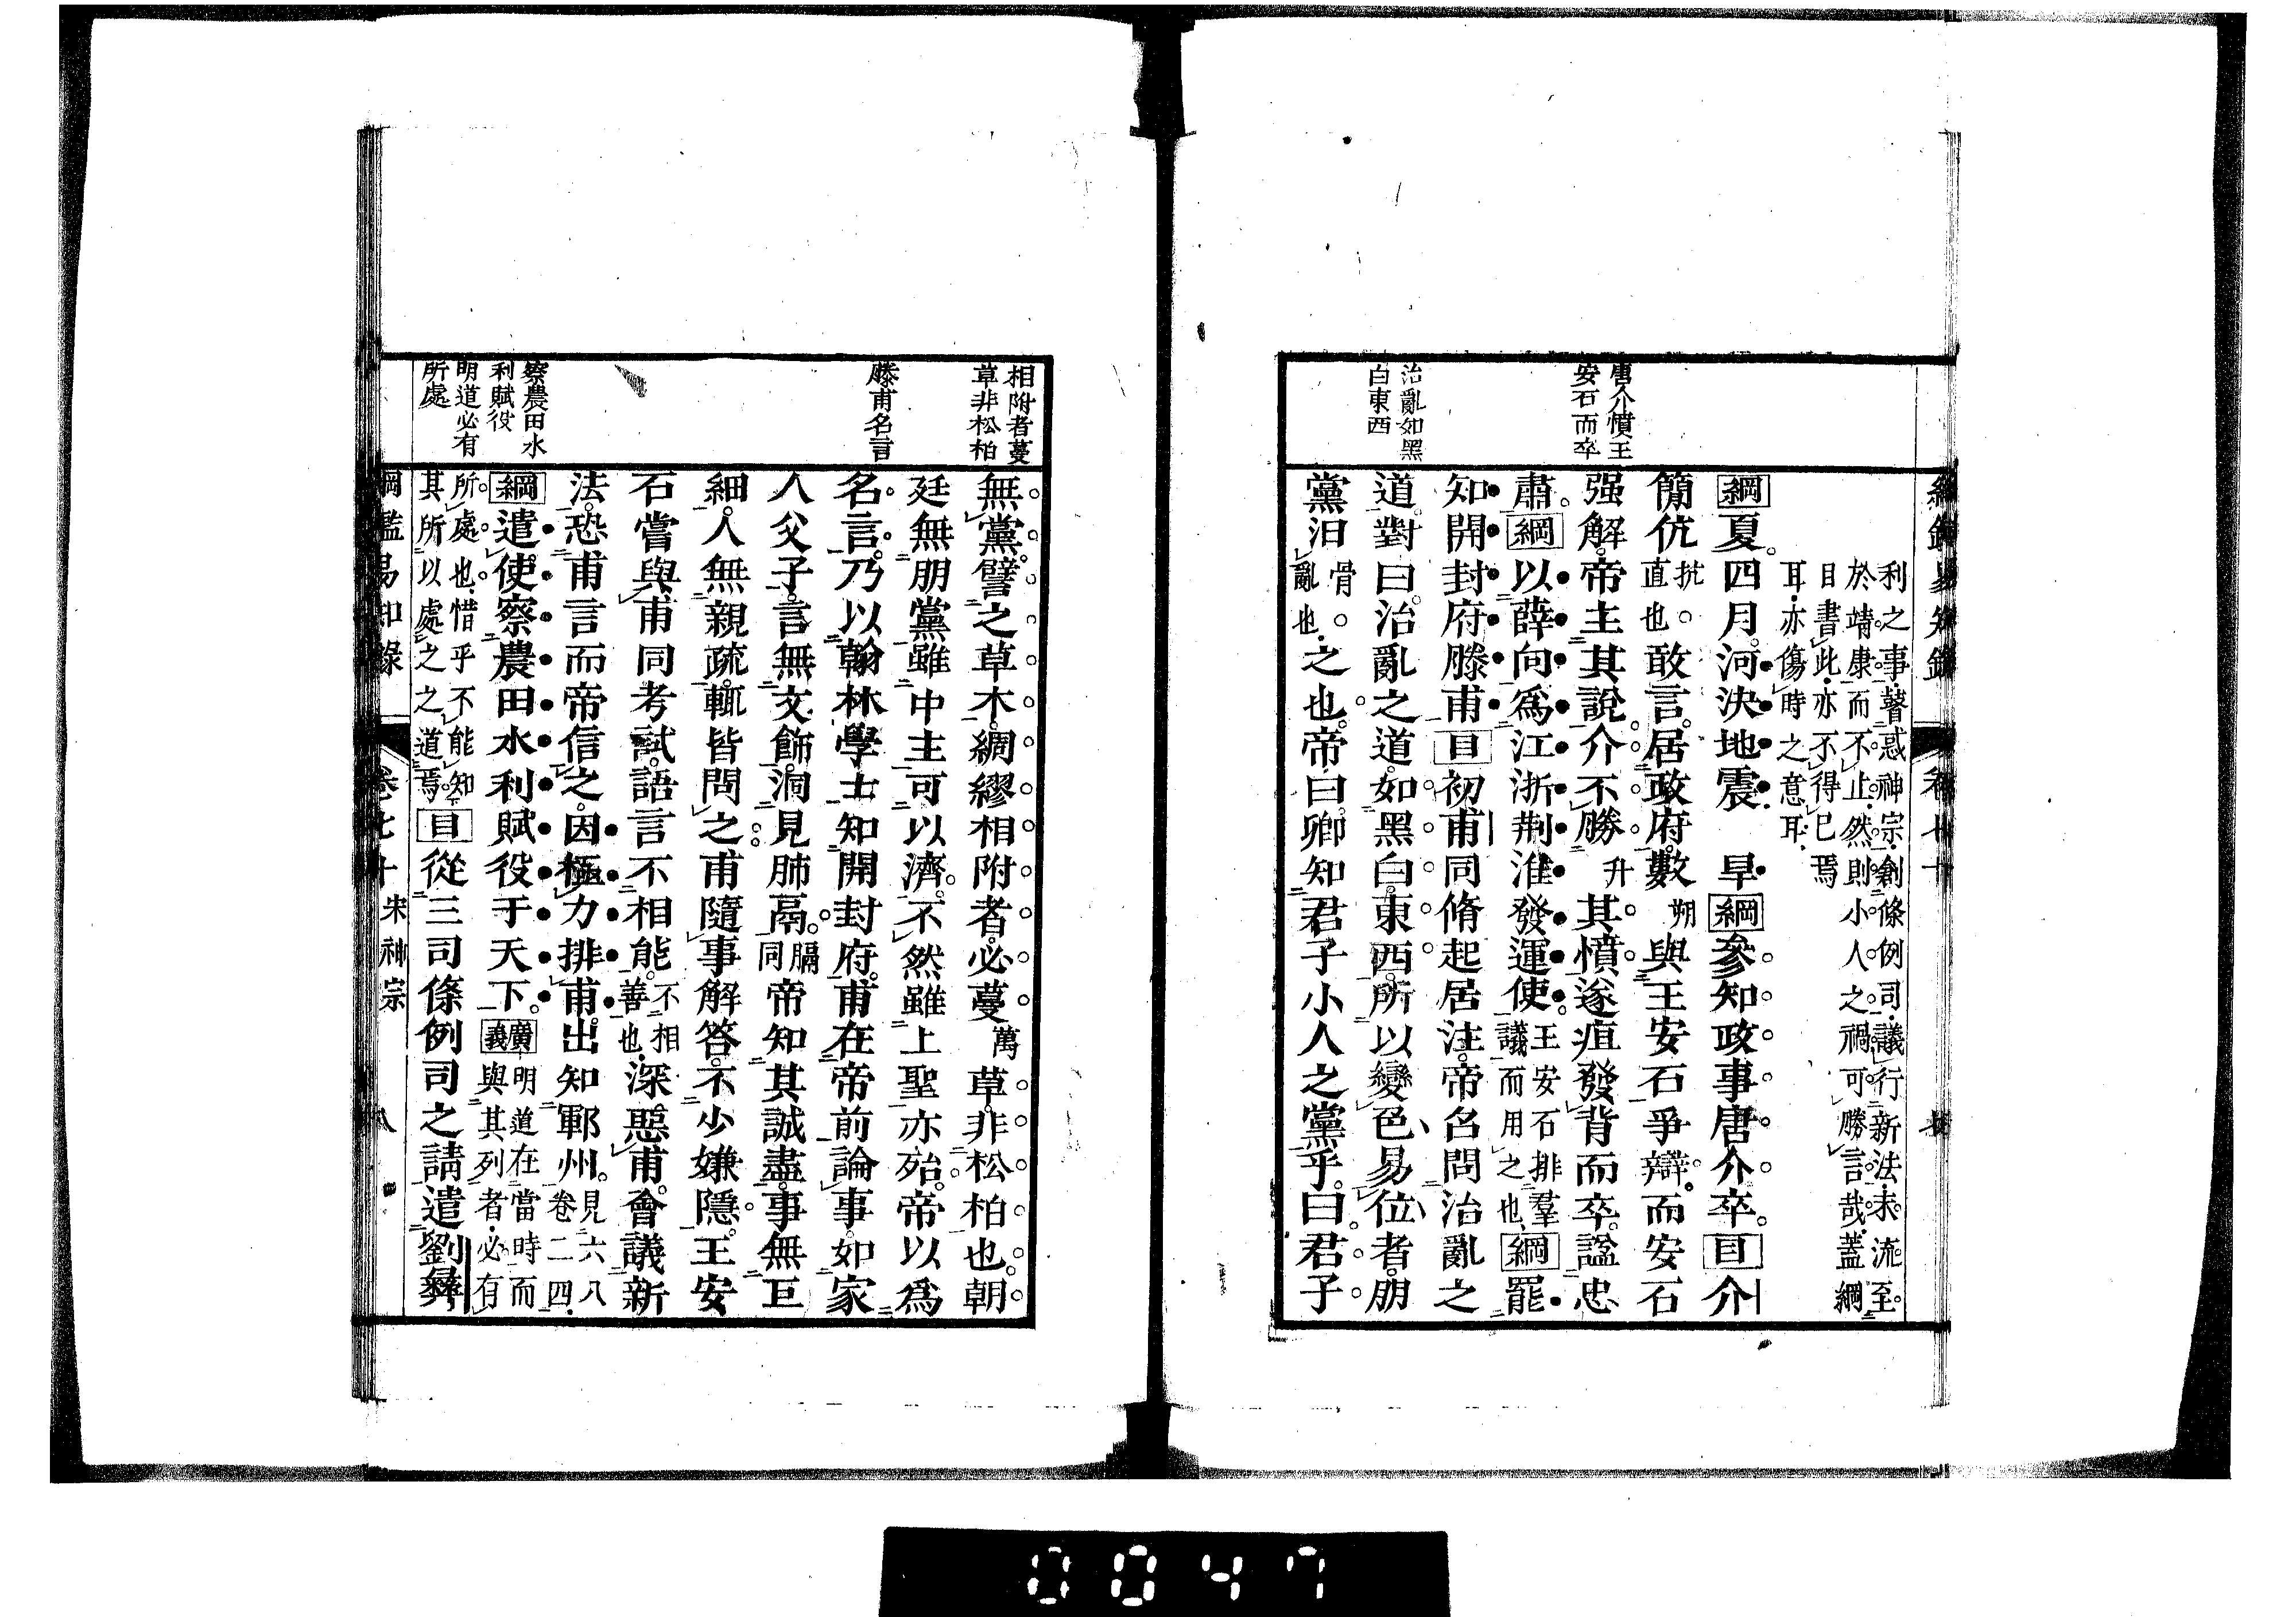 唐介憤王
安石而卒
治亂如黑
白東西
利之事瞽惑神宗創條例司議行新法未流至
於靖康而不止然則小人之禍可勝言哉蓋綱
目書此亦不得已焉
耳亦傷時之意耳
綱夏四月河決地震 旱綱參知政事唐介卒目介
簡伉抗直也敢言居政府數朔與王安石爭辯而安石
强解帝主其說介不勝升其憤遂疽發背而卒諡忠
肅綱以薛向爲江浙荆淮發運使王安石排羣議而用之也綱罷
知開封府滕甫目初甫同脩起居注帝名問治亂之
道對曰治亂之道如黑白東西所以變色易位者朋
黨汨骨亂也之也帝曰卿知君子小人之黨乎曰君子
相附者蔓
草非松柏
滕甫名言
察農田水
利賦役
明道必有
所處
無黨譬之草木綢繆相附者必蔓萬草非松柏也朝
廷無朋黨雖中主可以濟不然雖上聖亦殆帝以爲
名言乃以翰林學士知開封府甫在帝前論事如家
人父子言無文飾洞見肺鬲膈同帝知其誠盡事無巨
細人無親疏輒皆問之甫隨事解答不少嫌隱王安
石嘗與甫同考試語言不相能不相善也深惡甫會議新
法恐甫言而帝信之因極力排甫出知鄆州見六八卷二四
綱遣使察農田水利賦役于天下廣義明道在當時而與其列者必有
所處也惜乎不能知其所以處之之道焉目從三司條例司之請遣劉彝
綱鑑易知錄 卷七十 宋神宗 八
0047